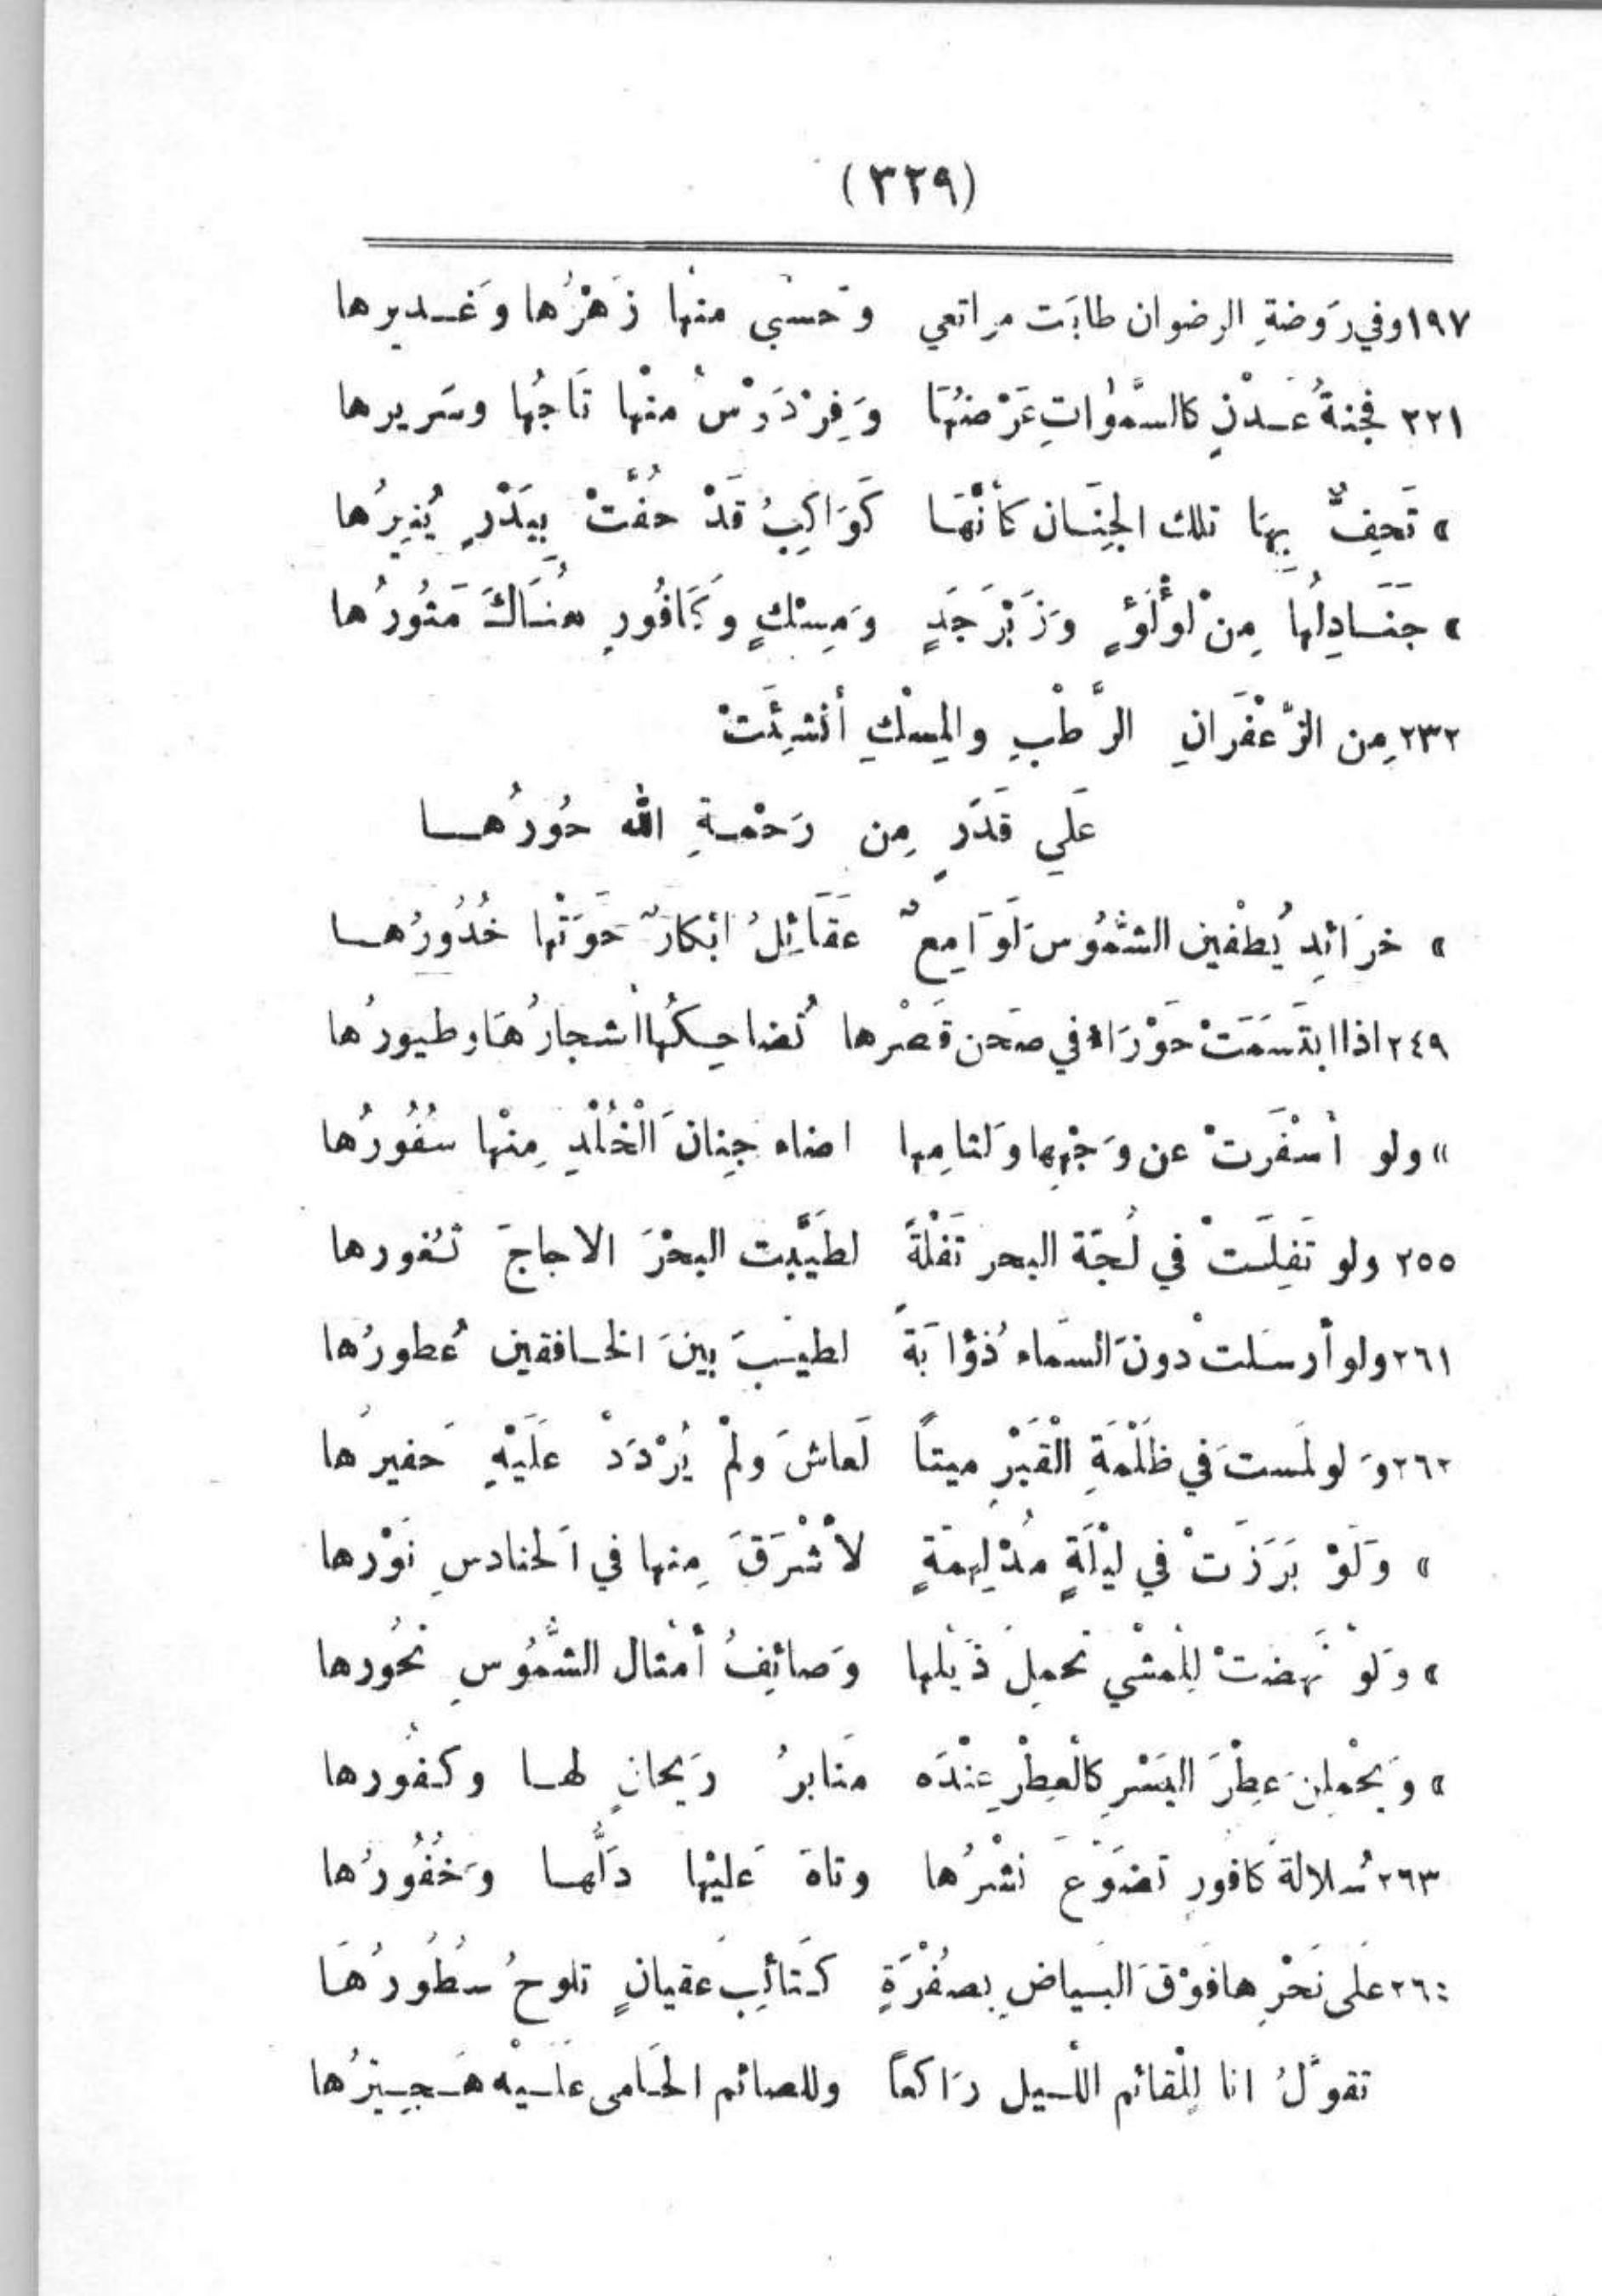 (٣٢٩)
١٩٧ وفي رَوضةِ الرضوان طابَت مراتعي وحسْبي منْها زَهْرُها وَغَـديرها
٢٢١ فجنةُ عَـدْنٍ كالسَّمٰواتِ عَرْضُهَا وَفِرْدَوْسُ منْها تَاجُها وسَريرها
» تَحِفُّ بِهَا تلك الجِنَـان كأنَّهَـا كَوَاكِبُ قَدْ حُفَّتْ بِبَدْرٍ يُنِيرُها
» جَنَـادِلُهَا مِنْ لُوْلُؤٍ وَزَبَرْجَدٍ وَمِسْكٍ وَكَافُورٍ هُنَـاكَ مَثُورُها
٢٣٢ مِن الزَّعْفَرانِ الرَّطْبِ والمِسْكِ أنْشِئَتْ
عَلي قَدَرٍ مِن رَحْمـةِ الله حُورُهـــا
» خرَائدِ يُطْفين الشُّمُوس لَوَامِعٌ عَقَائِلُ ابْكارٌ حَوَتْها خُدُورُهـــا
٢٤٩ اذا ابتَسَمَتْ حَوْرَاء في صَحن قَصْرها تُضاحِـكُها أشجارُهَا وطيورُها
» ولو أسْفَرتْ عن وَجْهِها وَلثامِها اضاء جِنانَ الْخُلْدِ مِنْها سُفُورُها
٢٥٥ ولو تَفِلَـتْ في لُجّة البحر تَفْلَةً لطَيَّبت البحْرَ الاجاجَ ثـغورها
٢٦١ ولو أرسَلتْ دونَ السَّماء ذُؤابَةً لطيَبَ بينَ الخـافقين عُطورُها
٢٦٢ وَ لو لمَست في ظَلْمَةِ الْقَبْرِ ميتاً لَعاشَ ولمْ يُرْدَدْ عَلَيْهِ حَفيرُها
» وَلَوْ بَرَزَتْ في ليْلَةٍ مُدْلِهمّةٍ لأشْرَقَ مِنها في الَحنادسِ نَوْرها
» وَلَوْ نَهَضتْ لِلمشْي تحملَ ذَيْلها وَصائِفُ أمْثال الشُّمُوسِ نحُورها
» وَيحْمِلنَ عِطْرَ اليَسْرِ كالْعِطْرِ عِنْدَه مَنابرُ رَيحانٍ لهـا وكـفُورها
٢٦٣ سُلالةَ كافورٍ تضَوّعَ نشْرُها وتاهَ عَليْها دَلُّهـا وَخُفُورُها
٢٦٤ عَلَى نَحْرِها فَوْقَ البَـياضِ بِصُفْرَةٍ كـتَائِبَ عَقيانٍ تلوحُ سُطُورُهَا
تقولُ انا لِلْقائم اللّـيل رَاكعاً وللصائم الحَامى عَلَـيْه هَـجِـيرُها